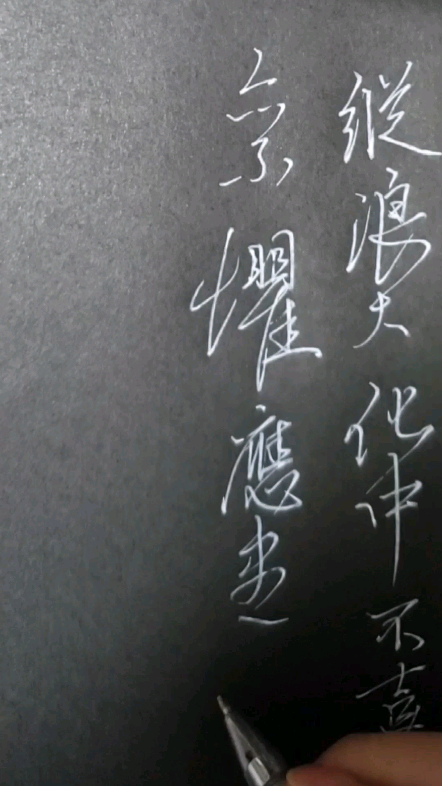 縱浪大化中不喜
亦不懼應盡